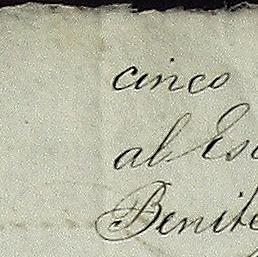 cinco
al Es
Benite